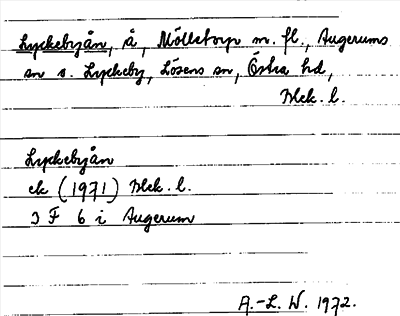 Lyckebyån, å, Mölletorp m. fl., Augerums
sn o. Lyckeby, Lösens sn, Östra hd,
Blek. l.
Lyckebyån
ek (1971) Blek. l.
3 F 6 i Augerum
A.-L. W. 1972.